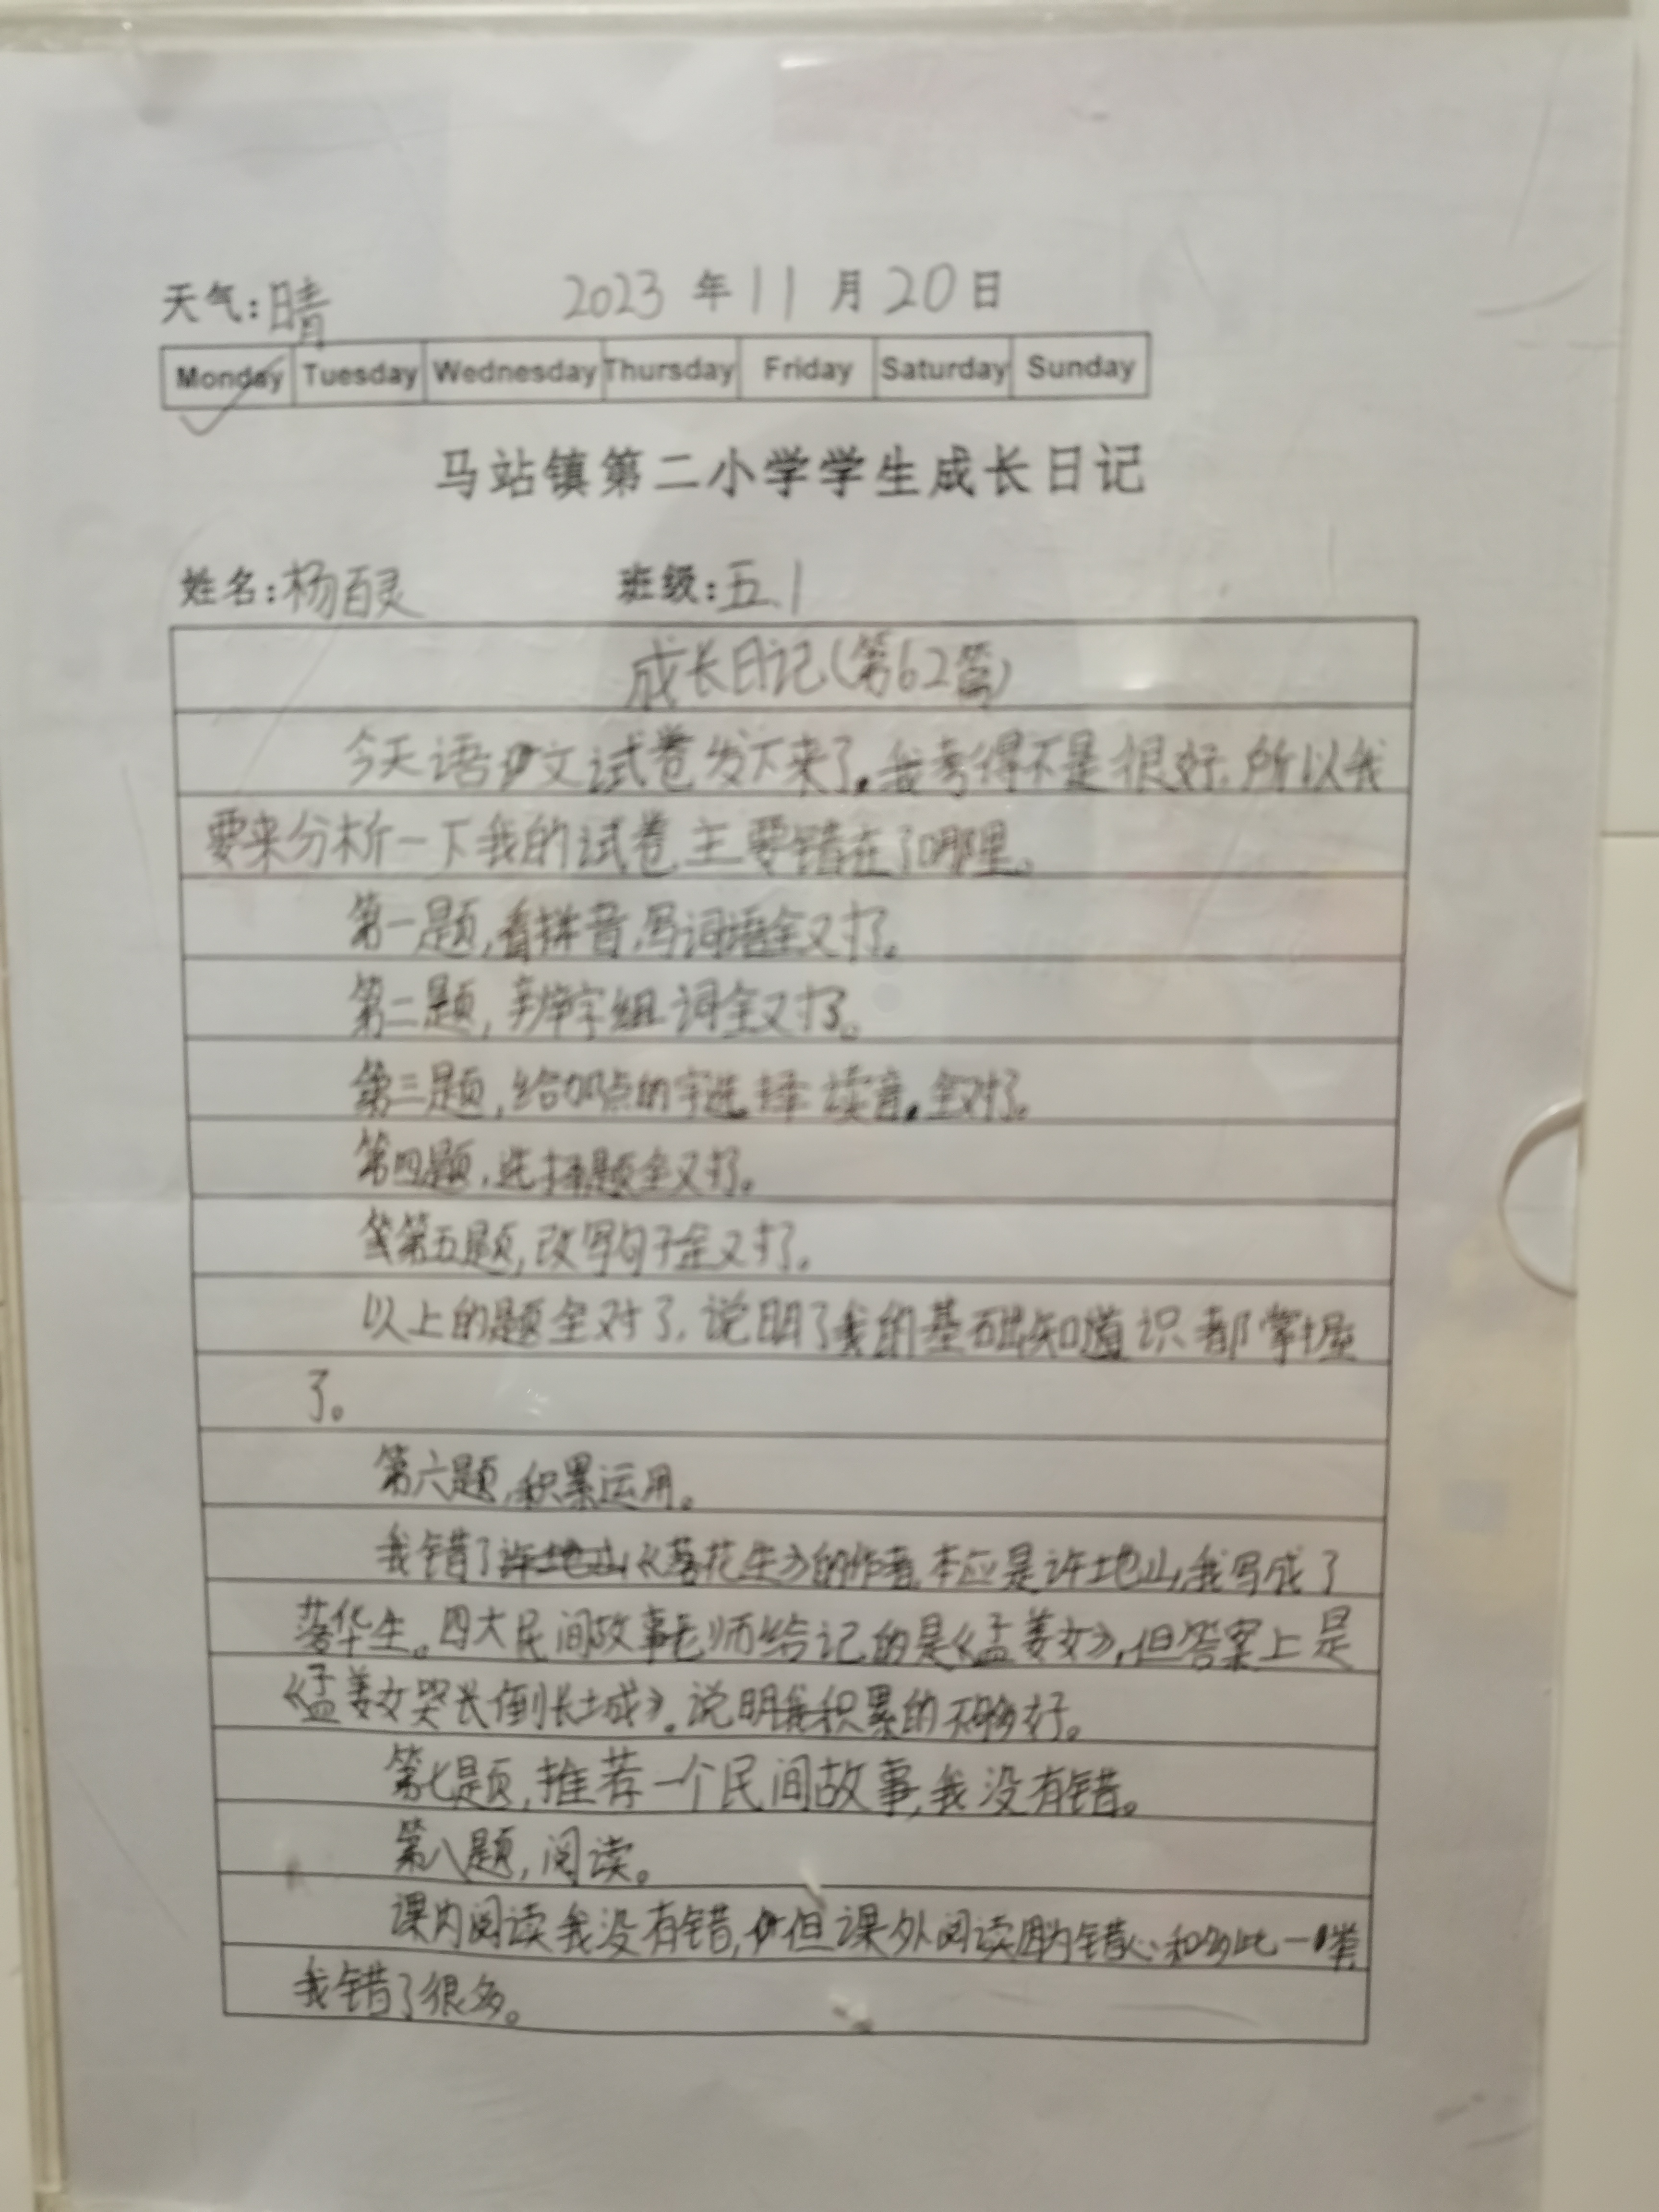 天气:晴 2023 年 11 月 20 日
Monday Tuesday Wednesday Thursday Friday Saturday Sunday
马站镇第二小学学生成长日记
姓名:杨百灵 班级:五.1
成长日记(第62篇)
今天语文试卷发下来了。我考得不是很好,所以我
要来分析一下我的试卷主要错在了哪里。
第一题,看拼音,写词语全对了。
第二题,辨字组词全对了。
第三题,给加点的字选择读音。全对了。
第四题,选择题全对了。
第五题,改写句子全对了。
以上的题全对了,说明了我的基础知识都掌握
了。
第六题,积累运用。
我错了《落花生》的作者,本应是许地山,我写成了
落华生。四大民间故事老师给记的是《孟姜女》,但答案上是
《孟姜女哭长倒长城》。说明我积累的不够好。
第七题,推荐一个民间故事,我没有错。
第八题,阅读。
课内阅读我没有错,但课外阅读因为错心和多此一举
我错了很多。